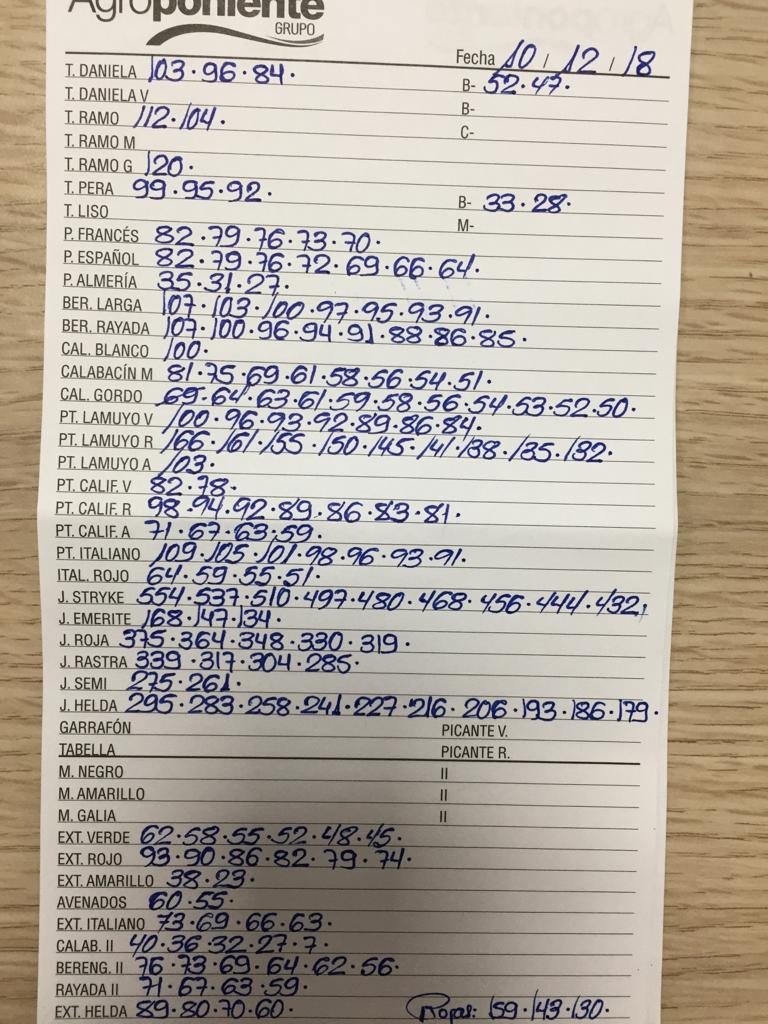 Agroponiente
GRUPO
Fecha 10 / 12 / 18
T. DANIELA 103·96·84· B- 52·47·
T. DANIELA V B-
T. RAMO 112·104· C-
T. RAMO M
T. RAMO G 120·
T. PERA 99·95·92· B- 33·28·
T. LISO M-
P. FRANCÉS 82·79·76·73·70·
P. ESPAÑOL 82·79·76·72·69·66·64·
P. ALMERÍA 35·31·27·
BER. LARGA 107·103·100·97·95·93·91·
BER. RAYADA 107·100·96·94·91·88·86·85·
CAL. BLANCO 100·
CALABACÍN M 81·75·69·61·58·56·54·51·
CAL. GORDO 69·64·63·61·59·58·56·54·53·52·50·
PT. LAMUYO V 100·96·93·92·89·86·84·
PT. LAMUYO R 166·161·155·150·145·141·138·135·132·
PT. LAMUYO A 103·
PT. CALIF. V 82·78·
PT. CALIF. R 98·94·92·89·86·83·81·
PT. CALIF. A 71·67·63·59·
PT. ITALIANO 109·105·101·98·96·93·91·
ITAL. ROJO 64·59·55·51·
J. STRYKE 554·537·510·497·480·468·456·444·432,
J. EMERITE 168·147·134·
J. ROJA 375·364·348·330·319·
J. RASTRA 339·317·304·285·
J. SEMI 275·261·
J. HELDA 295·283·258·241·227·216·206·193·186·179·
GARRAFÓN PICANTE V.
TABELLA PICANTE R.
M. NEGRO II
M. AMARILLO II
M. GALIA II
EXT. VERDE 62·58·55·52·48·45·
EXT. ROJO 93·90·86·82·79·74·
EXT. AMARILLO 38·23·
AVENADOS 60·55·
EXT. ITALIANO 73·69·66·63·
CALAB. II 40·36·32·27·7·
BERENG. II 76·73·69·64·62·56·
RAYADA II 71·67·63·59·
EXT. HELDA 89·80·70·60· 159·143·130·